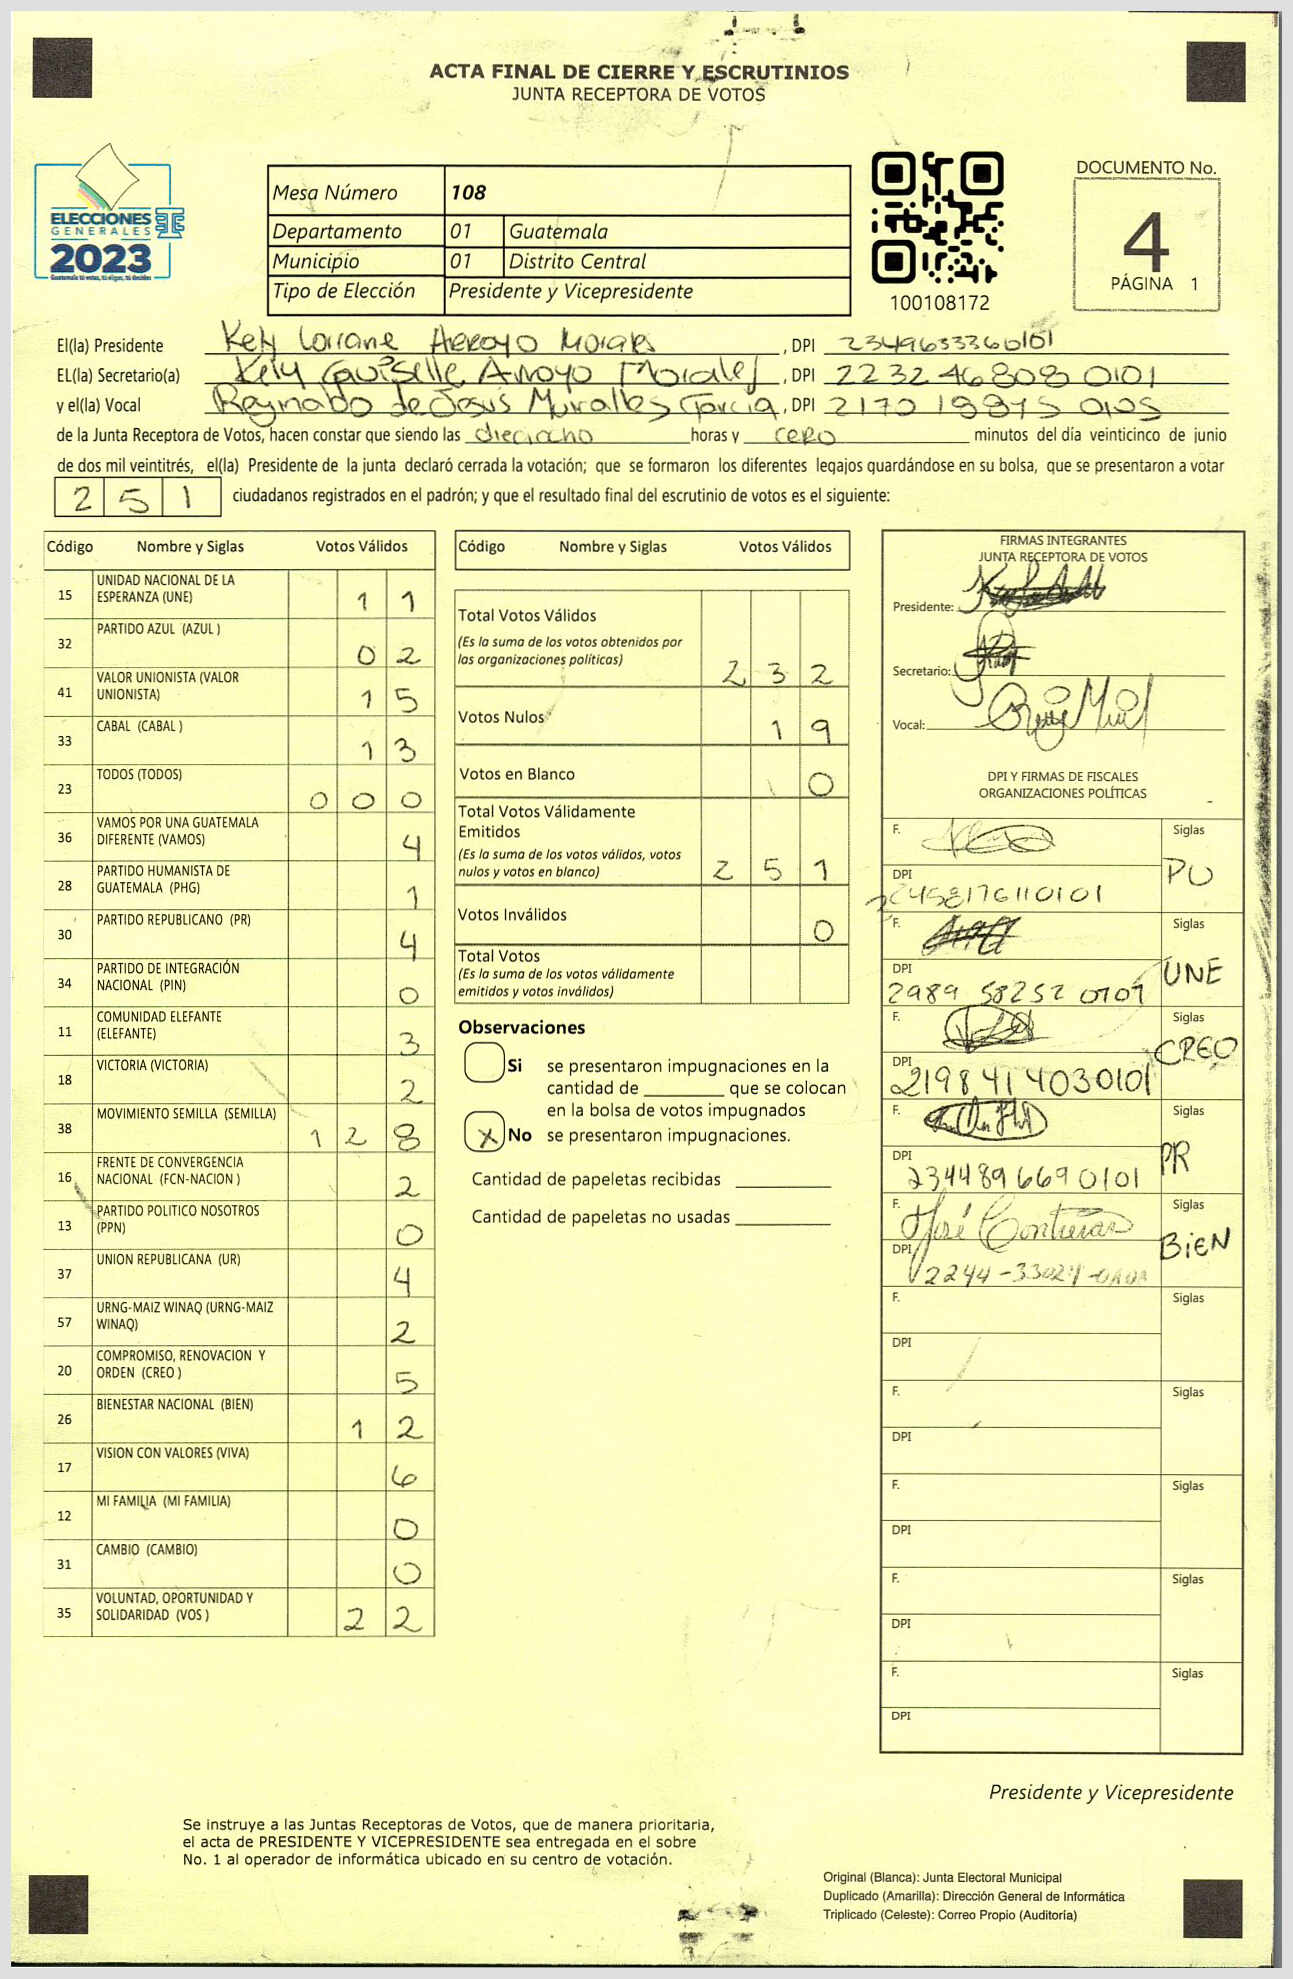 ACTA FINAL DE CIERRE Y ESCRUTINIOS
JUNTA RECEPTORA DE VOTOS
ELECCIONES
GENERALES
2023
Guatemala tú votas, tú eliges, tú decides
Mesa Número 108
Departamento 01 Guatemala
Municipio 01 Distrito Central
Tipo de Elección Presidente y Vicepresidente
100108172
DOCUMENTO No.
4
PÁGINA 1
El(la) Presidente Kely Lorrane Arroyo Morales, DPI 2349633360101
EL(la) Secretario(a) Kely Guiselle Arroyo Morales, DPI 2232 46808 0101
y el(la) Vocal Reginaldo de Jesús Muralles García, DPI 2170 18815 0105
de la Junta Receptora de Votos, hacen constar que siendo las dieciocho horas y cero minutos del día veinticinco de junio
de dos mil veintitrés, el(la) Presidente de la junta declaró cerrada la votación; que se formaron los diferentes legajos guardándose en su bolsa, que se presentaron a votar
251 ciudadanos registrados en el padrón; y que el resultado final del escrutinio de votos es el siguiente:
Código Nombre y Siglas Votos Válidos
15 UNIDAD NACIONAL DE LA ESPERANZA (UNE) 11
32 PARTIDO AZUL (AZUL ) 02
41 VALOR UNIONISTA (VALOR UNIONISTA) 15
33 CABAL (CABAL ) 13
23 TODOS (TODOS) 000
36 VAMOS POR UNA GUATEMALA DIFERENTE (VAMOS) 4
28 PARTIDO HUMANISTA DE GUATEMALA (PHG) 1
30 PARTIDO REPUBLICANO (PR) 4
34 PARTIDO DE INTEGRACIÓN NACIONAL (PIN) 0
11 COMUNIDAD ELEFANTE (ELEFANTE) 3
18 VICTORIA (VICTORIA) 2
38 MOVIMIENTO SEMILLA (SEMILLA) 128
16 FRENTE DE CONVERGENCIA NACIONAL (FCN-NACION ) 2
13 PARTIDO POLITICO NOSOTROS (PPN) 0
37 UNION REPUBLICANA (UR) 4
57 URNG-MAIZ WINAQ (URNG-MAIZ WINAQ) 2
20 COMPROMISO, RENOVACION Y ORDEN (CREO ) 5
26 BIENESTAR NACIONAL (BIEN) 12
17 VISION CON VALORES (VIVA) 6
12 MI FAMILIA (MI FAMILIA) 0
31 CAMBIO (CAMBIO) 0
35 VOLUNTAD, OPORTUNIDAD Y SOLIDARIDAD (VOS ) 22
Código Nombre y Siglas Votos Válidos
Total Votos Válidos
(Es la suma de los votos obtenidos por
las organizaciones políticas) 232
Votos Nulos 19
Votos en Blanco 0
Total Votos Válidamente
Emitidos
(Es la suma de los votos válidos, votos
nulos y votos en blanco) 251
Votos Inválidos 0
Total Votos
(Es la suma de los votos válidamente
emitidos y votos inválidos)
Observaciones
Si se presentaron impugnaciones en la
cantidad de ________ que se colocan
en la bolsa de votos impugnados
X No se presentaron impugnaciones.
Cantidad de papeletas recibidas
Cantidad de papeletas no usadas
FIRMAS INTEGRANTES
JUNTA RECEPTORA DE VOTOS
Presidente:
Secretario:
Vocal:
DPI Y FIRMAS DE FISCALES
ORGANIZACIONES POLÍTICAS
F. Siglas
DPI PU
2458176110101
F. Siglas
DPI UNE
2989 58252 0101
F. Siglas
DPI CREO
2198 41403 0101
F. Siglas
DPI PR
2344896690101
F. José Contreras Siglas
DPI BIEN
2244-33024-
F. Siglas
DPI
F. Siglas
DPI
F. Siglas
DPI
F. Siglas
DPI
F. Siglas
DPI
Presidente y Vicepresidente
Se instruye a las Juntas Receptoras de Votos, que de manera prioritaria,
el acta de PRESIDENTE Y VICEPRESIDENTE sea entregada en el sobre
No. 1 al operador de informática ubicado en su centro de votación.
Original (Blanca): Junta Electoral Municipal
Duplicado (Amarilla): Dirección General de Informática
Triplicado (Celeste): Correo Propio (Auditoría)